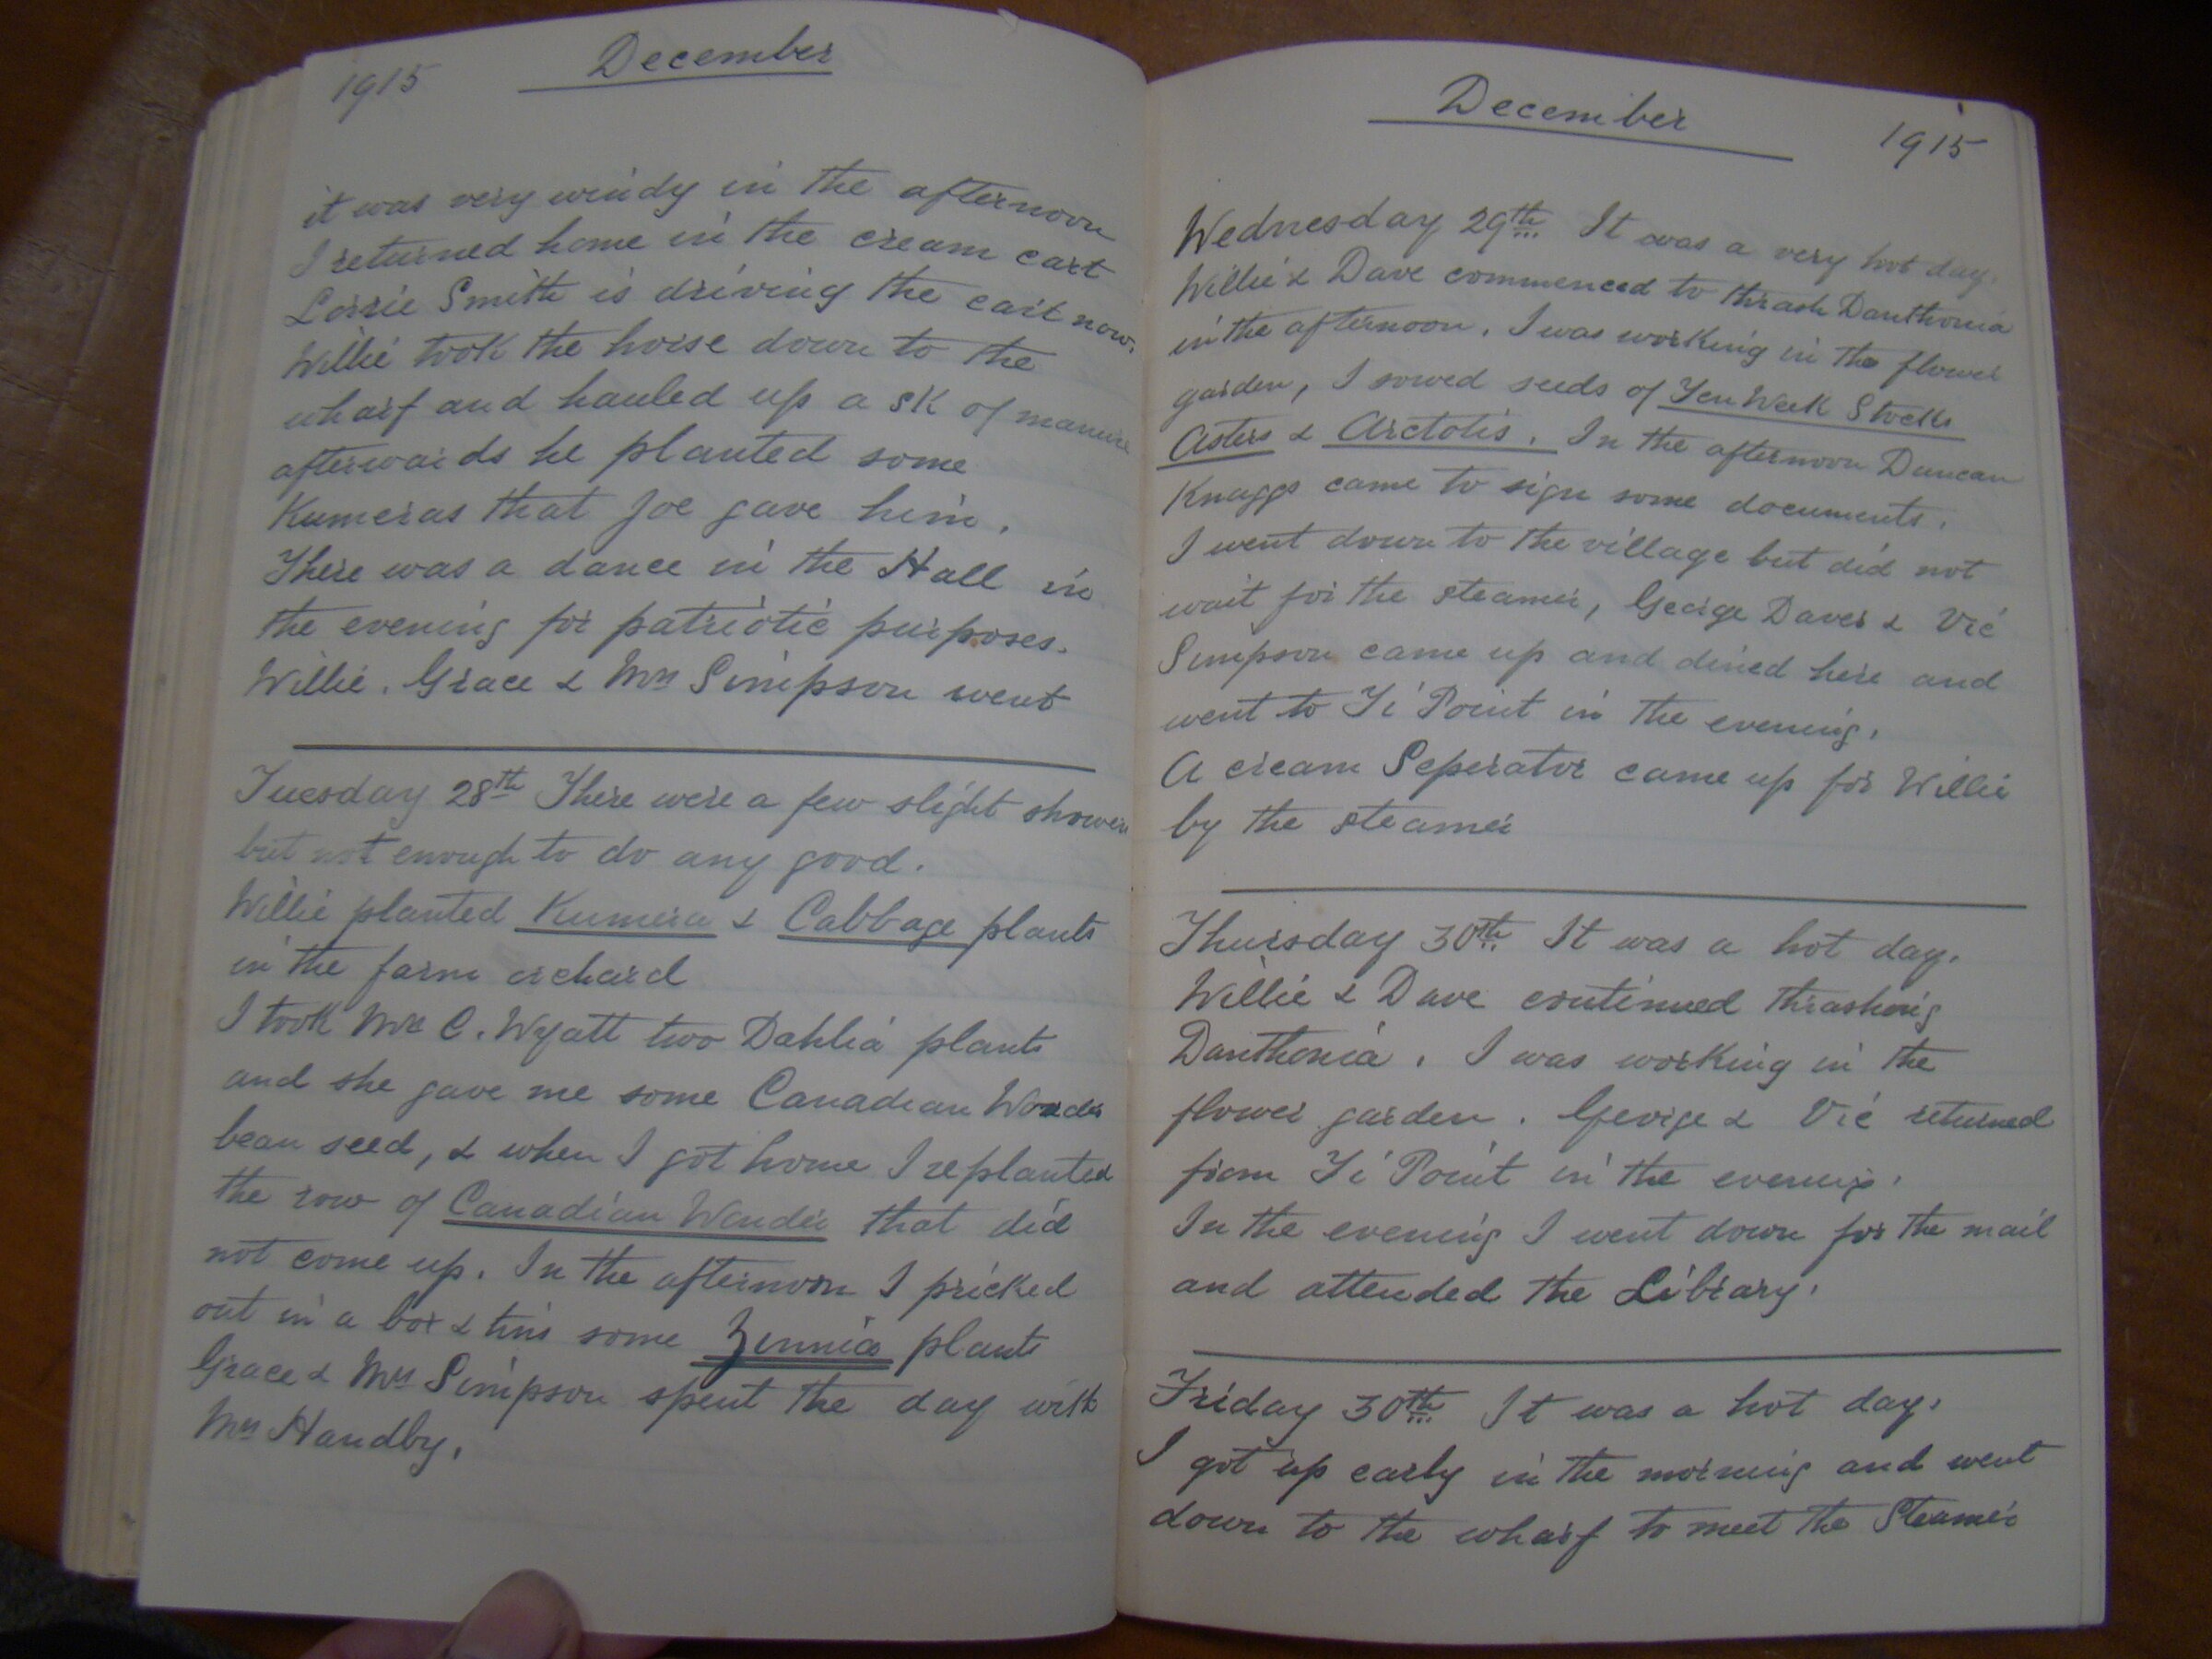 1915 December
it was very windy in the afternoon
I returned home in the cream cart
Lorrie Smith is driving the cart now.
Willie took the horse down to the
wharf and hauled up a sk of manure
afterwards he planted some
Kumeras that Joe gave him.
There was a dance in the Hall in
the evening for patriotic purposes.
Willie. Grace & Mrs Simpson went
Tuesday 28th There were a few slight showers
but not enough to do any good.
Willie planted Kumera & Cabbage plants
in the farm orchard
I took Mrs C. Wyatt two Dahlia plants
and she gave me some Canadian Wonder
bean seed, & when I got home I replanted
the row of Canadian Wonder that did
not come up. In the afternoon I pricked
out in a box & tins some Zennias plants
Grace & Mrs Simpson spent the day with
Mrs Handby.
December 1915
Wednesday 29th It was a very hot day.
Willie & Dave commenced to thrash Danthonia
in the afternoon. I was working in the flower
garden, I sowed seeds of Ten Week Stocks
Asters & Arctotis. In the afternoon Duncan
Knaggs came to sign some documents.
I went down to the village but did not
wait for the steamer, George Daves & Vic
Simpson came up and dined here and
went to Ti Point in the evening.
A cream Seperator came up for Willie
by the steamer
Thursday 30th It was a hot day.
Willie & Dave continued thrashing
Danthonia. I was working in the
flower garden. George & Vic returned
from Ti Point in the evening.
In the evening I went down for the mail
and attended the Library.
Friday 30th It was a hot day.
I got up early in the morning and went
down to the wharf to meet the Steamer